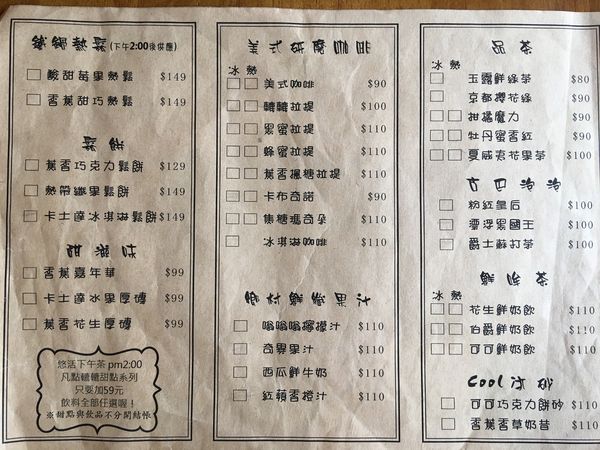 鐵鍋熱鬆(下午2:00後供應)
酸甜莓果熱鬆 $149
香蕉甜巧熱鬆 $149
鬆餅
蕉香巧克力鬆餅 $129
熱帶纖果鬆餅 $149
卡士達冰淇淋鬆餅 $149
甜滋味
香蕉嘉年華 $99
卡士達水果厚磚 $99
蕉香花生厚磚 $99
悠活下午茶 pm2:00
凡點轆轆甜點系列
只要加59元
飲料全部任選喔!
※甜點與飲品不分開結帳
美式研磨咖啡
冰 熱
美式咖啡 $90
轆轆拉提 $100
黑蜜拉提 $110
蜂蜜拉提 $110
蕉香楓糖拉提 $110
卡布奇諾 $90
焦糖瑪奇朵 $110
冰淇淋咖啡 $110
鄉村鮮榨果汁
嗡嗡嗡檸檬汁 $110
奇異果汁 $110
西瓜鮮牛奶 $110
紅蘋香橙汁 $110
品茶
冰 熱
玉露鮮綠茶 $80
京都櫻花綠 $90
柑橘魔力 $90
牡丹蜜香紅 $90
夏威夷花果茶 $100
粉紅皇后 $100
漂浮黑國王 $100
爵士蘇打茶 $100
冰 熱
花生鮮奶飲 $110
伯爵鮮奶飲 $110
可可鮮奶飲 $110
Cool冰砂
可可巧克力餅砂 $110
香蕉香草奶昔 $110